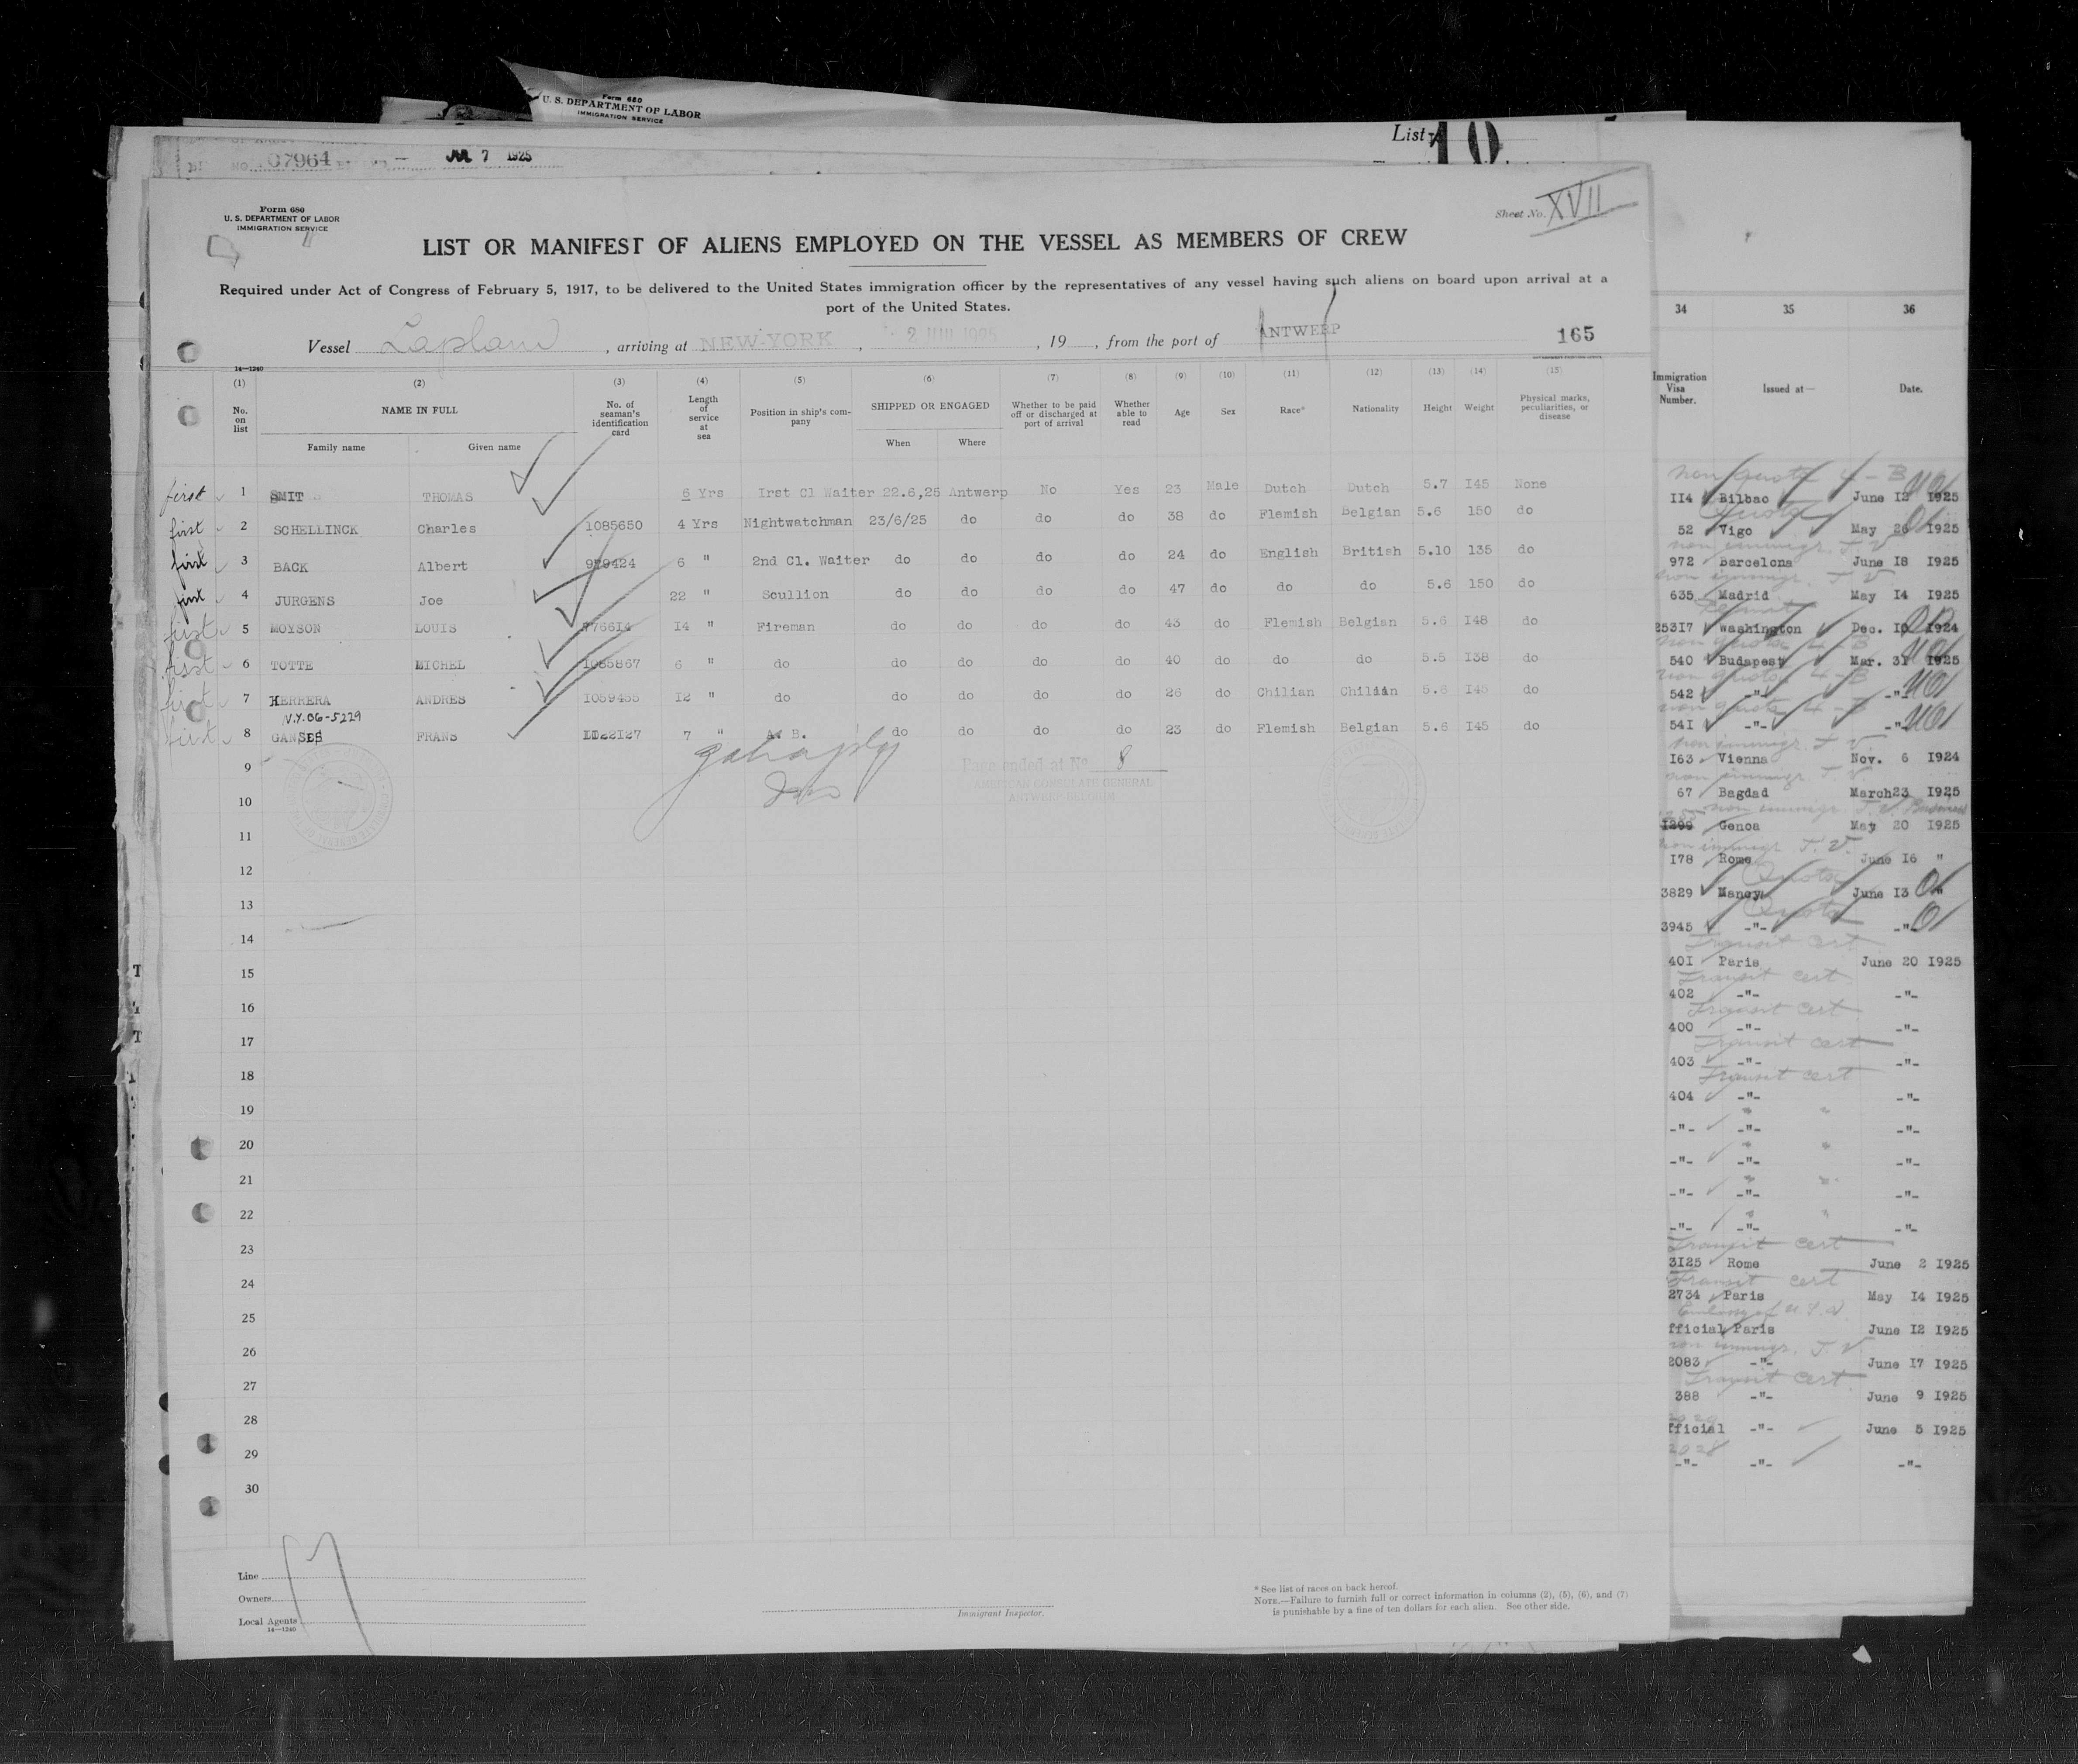 Form 680
U. S. DEPARTMENT OF LABOR
IMMIGRATION SERVICE
List 10
NO. 07964 JUL 7 1925
Form 680
U. S. DEPARTMENT OF LABOR
IMMIGRATION SERVICE
Sheet No. XVII
LIST OR MANIFEST OF ALIENS EMPLOYED ON THE VESSEL AS MEMBERS OF CREW
Required under Act of Congress of February 5, 1917, to be delivered to the United States immigration officer by the representatives of any vessel having such aliens on board upon arrival at a
port of the United States.
Vessel Lapland, arriving at NEW-YORK, 19, from the port of ANTWERP 165
14—1240
(1) (2) (3) (4) (5) (6) (7) (8) (9) (10) (11) (12) (13) (14) (15)
No. on list NAME IN FULL No. of seaman's identification card Length of service at sea Position in ship's company SHIPPED OR ENGAGED Whether to be paid off or discharged at port of arrival Whether able to read Age Sex Race* Nationality Height Weight Physical marks, peculiarities, or disease
Family name Given name When Where
first 1 SMIT THOMAS 6 Yrs Irst Cl Waiter 22.6,25 Antwerp No Yes 23 Male Dutch Dutch 5.7 I45 None
first 2 SCHELLINCK Charles 1085650 4 Yrs Nightwatchman 23/6/25 do do do 38 do Flemish Belgian 5.6 150 do
first 3 BACK Albert 979424 6 " 2nd Cl. Waiter do do do do 24 do English British 5.10 135 do
first 4 JURGENS Joe 22 " Scullion do do do do 47 do do do 5.6 150 do
first 5 MOYSON LOUIS 776614 I4 " Fireman do do do do 43 do Flemish Belgian 5.6 I48 do
first 6 TOTTE MICHEL I085867 6 " do do do do do 40 do do do 5.5 I38 do
first 7 HERRERA ANDRES I059455 I2 " do do do do do 26 do Chilian Chilian 5.6 I45 do
N.Y. 06-5229
first 8 GANSES FRANS 1122I27 7 " A. B. do do do do 23 do Flemish Belgian 5.6 I45 do
9
Page ended at No 8
AMERICAN CONSULATE GENERAL
ANTWERP BELGIUM
10
11
12
13
14
15
16
17
18
19
20
21
22
23
24
25
26
27
28
29
30
Line
Owners
Local Agents
14—1240
Immigrant Inspector.
* See list of races on back hereof.
NOTE.—Failure to furnish full or correct information in columns (2), (5), (6), and (7)
is punishable by a fine of ten dollars for each alien. See other side.
34 35 36
Immigration Visa Number. Issued at— Date.
non quota 4-B
II4 Bilbao June I2 I925
Quota
52 Vigo May 26 I925
non immigr. T V
972 Barcelona June I8 I925
non immigr. T V
635 Madrid May I4 I925
Permit
253I7 Washington Dec. I0 I924
non quota 4-B
540 Budapest Mar. 3I I925
non quota 4-B
542 -"- -"-
non quota 4-B
54I -"- -"-
non immigr. T V
I63 Vienna Nov. 6 I924
non immigr. T.V.
67 Bagdad March23 I925
non immigr. T.V. Business
I299 Genoa May 20 I925
non immigr. T.V.
I78 Rome June I6 "
Quota
3829 Nancy June I3 "
Quota
3945 -"- -"-
Transit cert
40I Paris June 20 I925
Transit cert
402 -"- -"-
Transit cert
400 -"- -"-
Transit cert
403 -"- -"-
Transit cert
404 -"- -"-
-"- -"- -"-
-"- -"- -"-
-"- -"- -"-
-"- -"- -"-
Transit cert
3I25 Rome June 2 I925
Transit cert
2734 Paris May I4 I925
Embassy of U.S.A
fficial Paris June I2 I925
non immigr. T.V
2083 -"- June I7 I925
Transit cert
388 -"- June 9 I925
fficial -"- June 5 I925
2028
-"- -"- -"-